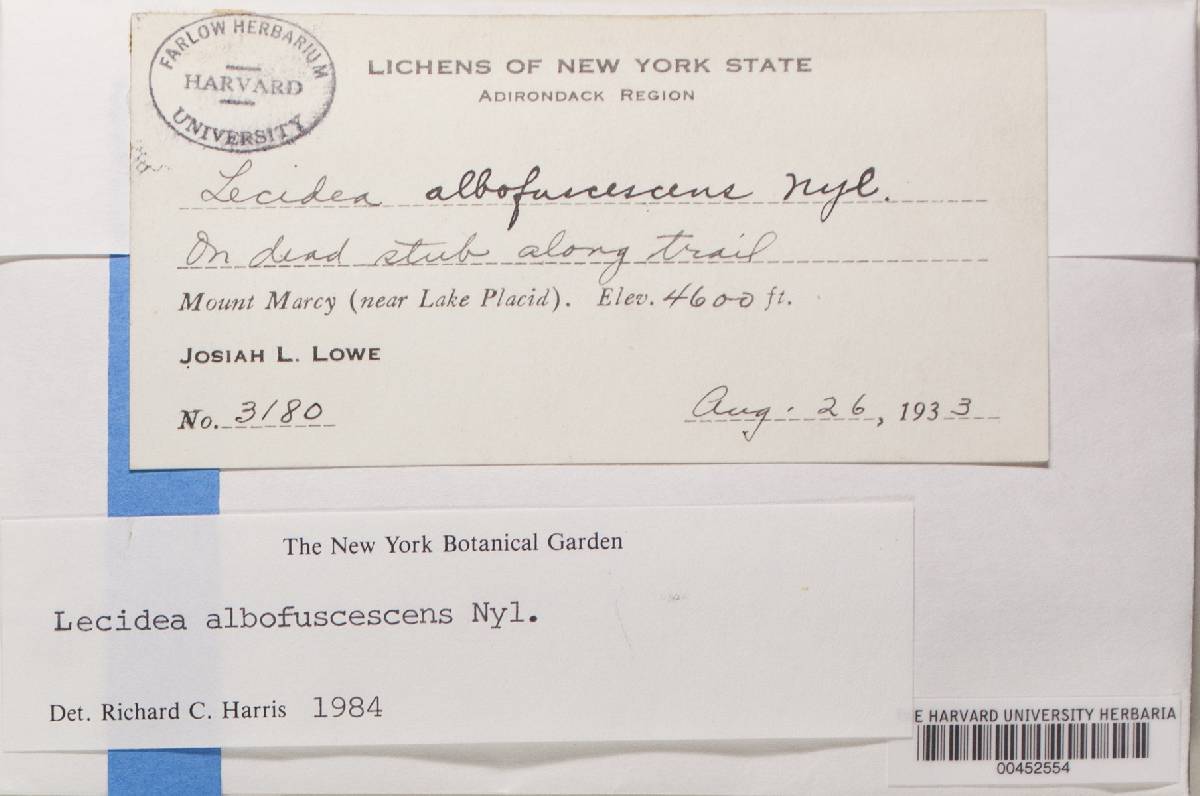 FARLOW HERBARIUM
HARVARD
UNIVERSITY
LICHENS OF NEW YORK STATE
ADIRONDACK REGION
Lecidea albofuscescens Nyl.
On dead stub along trail
Mount Marcy (near Lake Placid). Elev. 4600 ft.
JOSIAH L. LOWE
No. 3180
Aug. 26, 1933
The New York Botanical Garden
Lecidea albofuscescens Nyl.
Det. Richard C. Harris 1984
E HARVARD UNIVERSITY HERBARIA
00452554